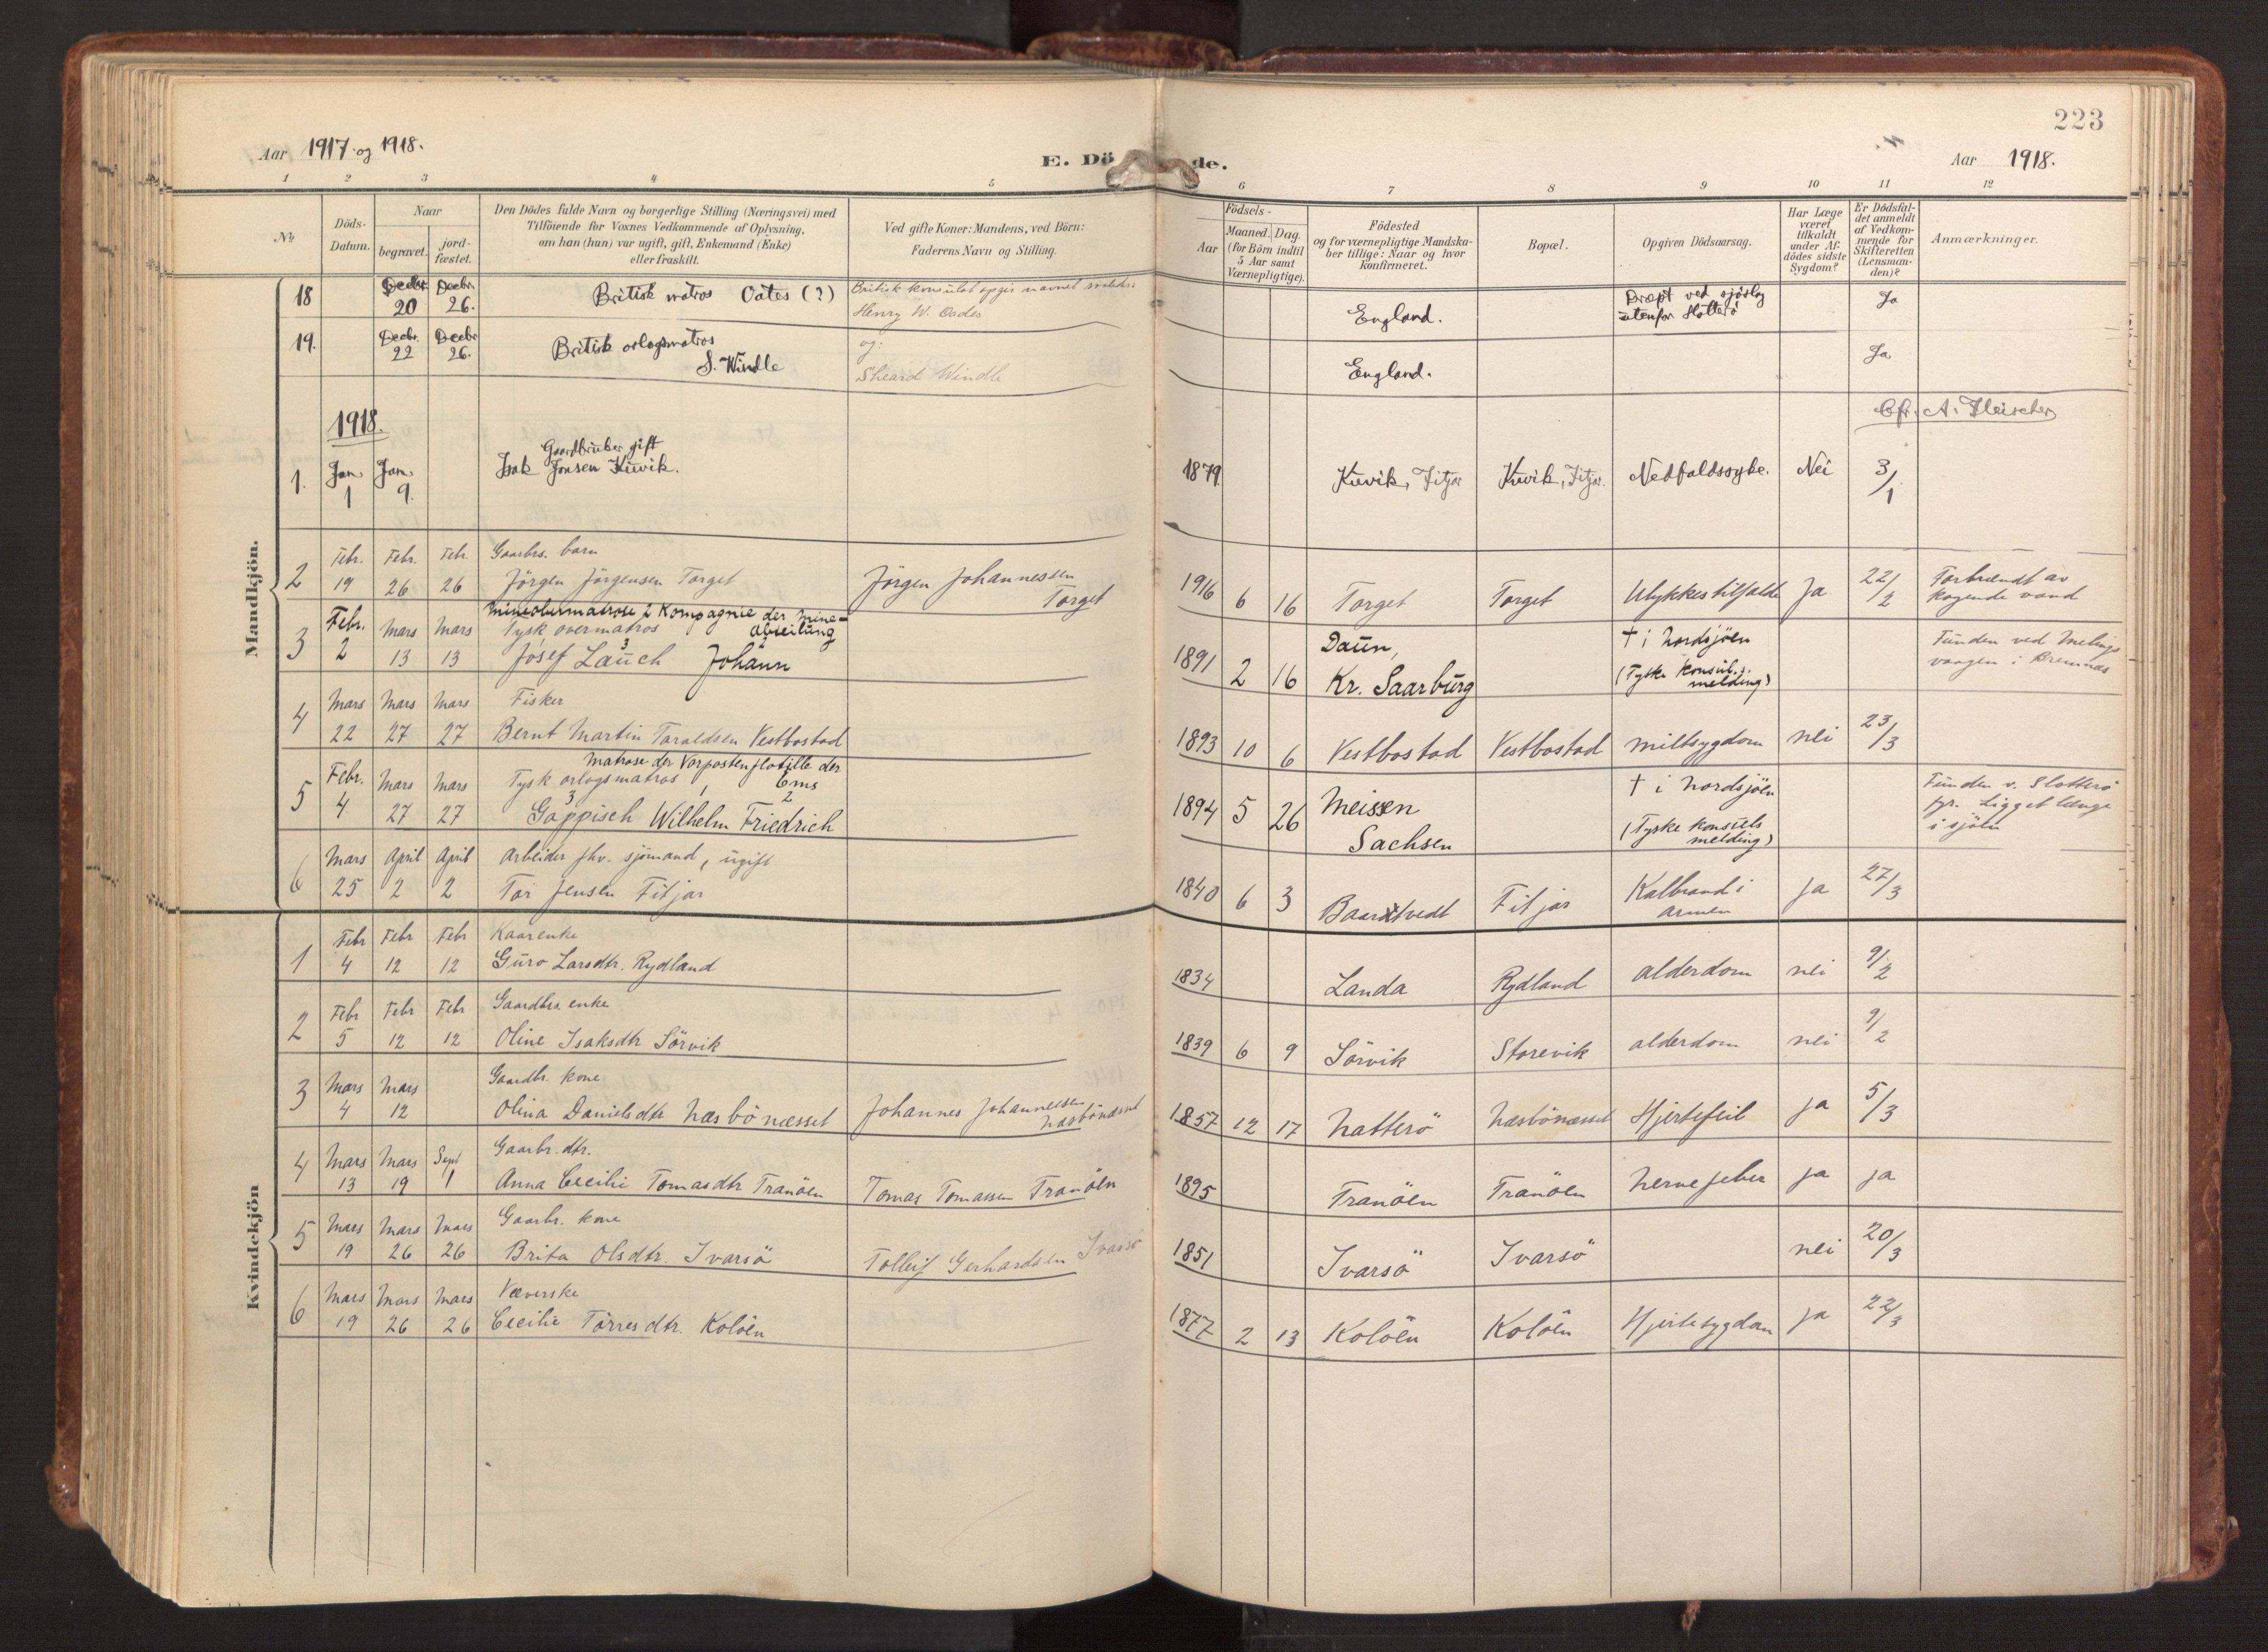 223
Aar 1917 og 1918.
E. Dö
de.
Aar 1918.
1 2 3 4 5 6 7 8 9 10 11 12
No
Döds-
Datum.
Naar
begravet.
jord-
fæstet.
Den Dödes fulde Navn og borgerlige Stilling (Næringsvei) med
Tilföiende for Voxnes Vedkommende af Oplysning,
om han (hun) var ugift, gift, Enkemand (Enke)
eller fraskilt.
Ved gifte Koner: Mandens, ved Börn:
Faderens Navn og Stilling.
Födsels-
Aar
Maaned. Dag.
(for Börn indtil
5 Aar samt
Værnepligtige).
Födested
og for værnepligtige Mandska-
ber tillige: Naar og hvor
konfirmeret.
Bopæl.
Opgiven Dödsaarsag.
Har Læge
været
tilkaldt
under Af-
dödes sidste
Sygdom?
Er Dödsfal-
det anmeldt
af Vedkom-
mende for
Skifteretten
(Lensman-
den)?
Anmærkninger.
Mandkjön.
18 Decbr. 20 Decbr. 26. Britisk matros Oates (?) Britisk konsulat opgir navnet
Henry W. Oades
England. Dræpt ved sjöslag
utenfor Slotterö Ja
19. Decbr. 22 Decbr 26. Britisk orlogsmatros
S. Windle
og:
Sheard Windle
England. Ja
Cfr. A. Fleischer
1918.
Gaardbruker, gift
1. Jan. 1 Jan. 9. Isak Jonsen Kuvik. 1879 Kuvik, Fitjar Kuvik, Fitjar. Nedfaldssyke. Nei 3/1
Gaarbrs. barn
2 Febr. 19 Febr. 26 Febr. 26 Jörgen Jörgensen Torget Jörgen Johannessen
Torget
1916 6 16 Torget Torget Ulykkestilfælde Ja 22/2 Forbrændt av
kogende vand
Mineobermatrose 2 Kompagnie der Mine-
abteilung
Tysk overmatros
3 Febr. 2 Mars 13 Mars 13 Josef Lauch Johann
1891 2 16 Daun,
Kr. Saarburg
† i Nordsjöen
(Tyske konsul.
melding)
Funden ved Melings
vaagen i Bremnes
Fisker
4 Mars 22 Mars 27 Mars 27 Bernt Martin Taraldsen Vestbostad 1893 10 6 Vestbostad Vestbostad miltsygdom nei 23/3
Matrose der Vorpostenflotille der
Ems
Tysk orlogsmatros
5 Febr. 4 Mars 27 Mars 27 Gappisch Wilhelm Friedrich
1894 5 26 Meissen
Sachsen
† i Nordsjöen
(Tyske konsuls
melding)
Funden v. Slotterö
fyr. Ligget længe
i sjöen
Arbeider fhv. sjömand, ugift
6 Mars 25 April 2 April 2 Tor Jensen Fitjar 1840 6 3 Baardtvedt Fitjar Kalbrand i
armen Ja 27/3
Kvindekjön
Kaarenke
1 Febr 4 Febr 12 Febr 12 Guro Larsdtr. Rydland 1834 Landa Rydland alderdom nei 9/2
Gaardbrs. enke
2 Febr 5 Febr 12 Febr 12 Oline Isaksdtr Sörvik 1839 6 9 Sörvik Storevik alderdom nei 9/2
Gaardbr. kone
3 Mars 4 Mars 12 Olina Danielsdtr Næsbönæsset Johannes Johannessen
Næsbönæsset
1857 12 17 Natterö Næsbönæsset Hjertefeil Ja 5/3
Gaarbr. dtr.
4 Mars 13 Mars 19 Sept 1 Anna Cecilie Tomasdtr Tranöen Tomas Tomassen Tranöen 1895 Tranöen Tranöen Nervefeber Ja Ja
Gaarbr. kone
5 Mars 19 Mars 26 Mars 26 Brita Olsdtr. Ivarsö Tolleif Gerhardsen Ivarsö 1851 Ivarsö Ivarsö nei 20/3
Væverske
6 Mars 19 Mars 26 Mars 26 Cecilie Törresdtr. Kolöen 1877 2 13 Kolöen Kolöen Hjertesygdom Ja 22/3